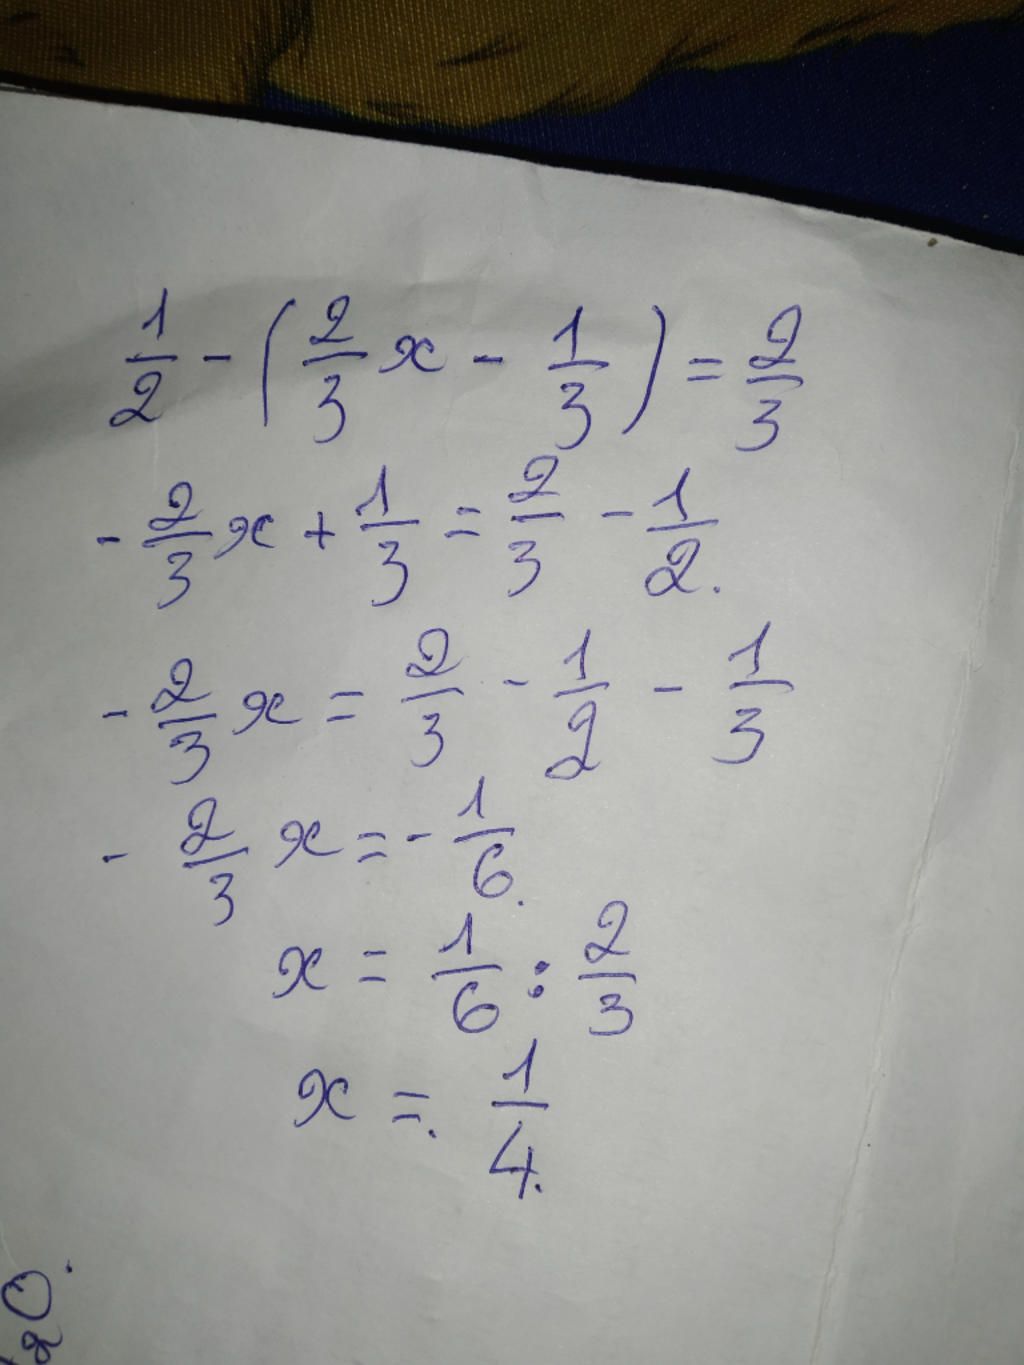 1/2 - (2/3 x - 1/3) = 2/3
- 2/3 x + 1/3 = 2/3 - 1/2.
- 2/3 x = 2/3 - 1/2 - 1/3
- 2/3 x = - 1/6.
x = 1/6 : 2/3
x = . 1/4.